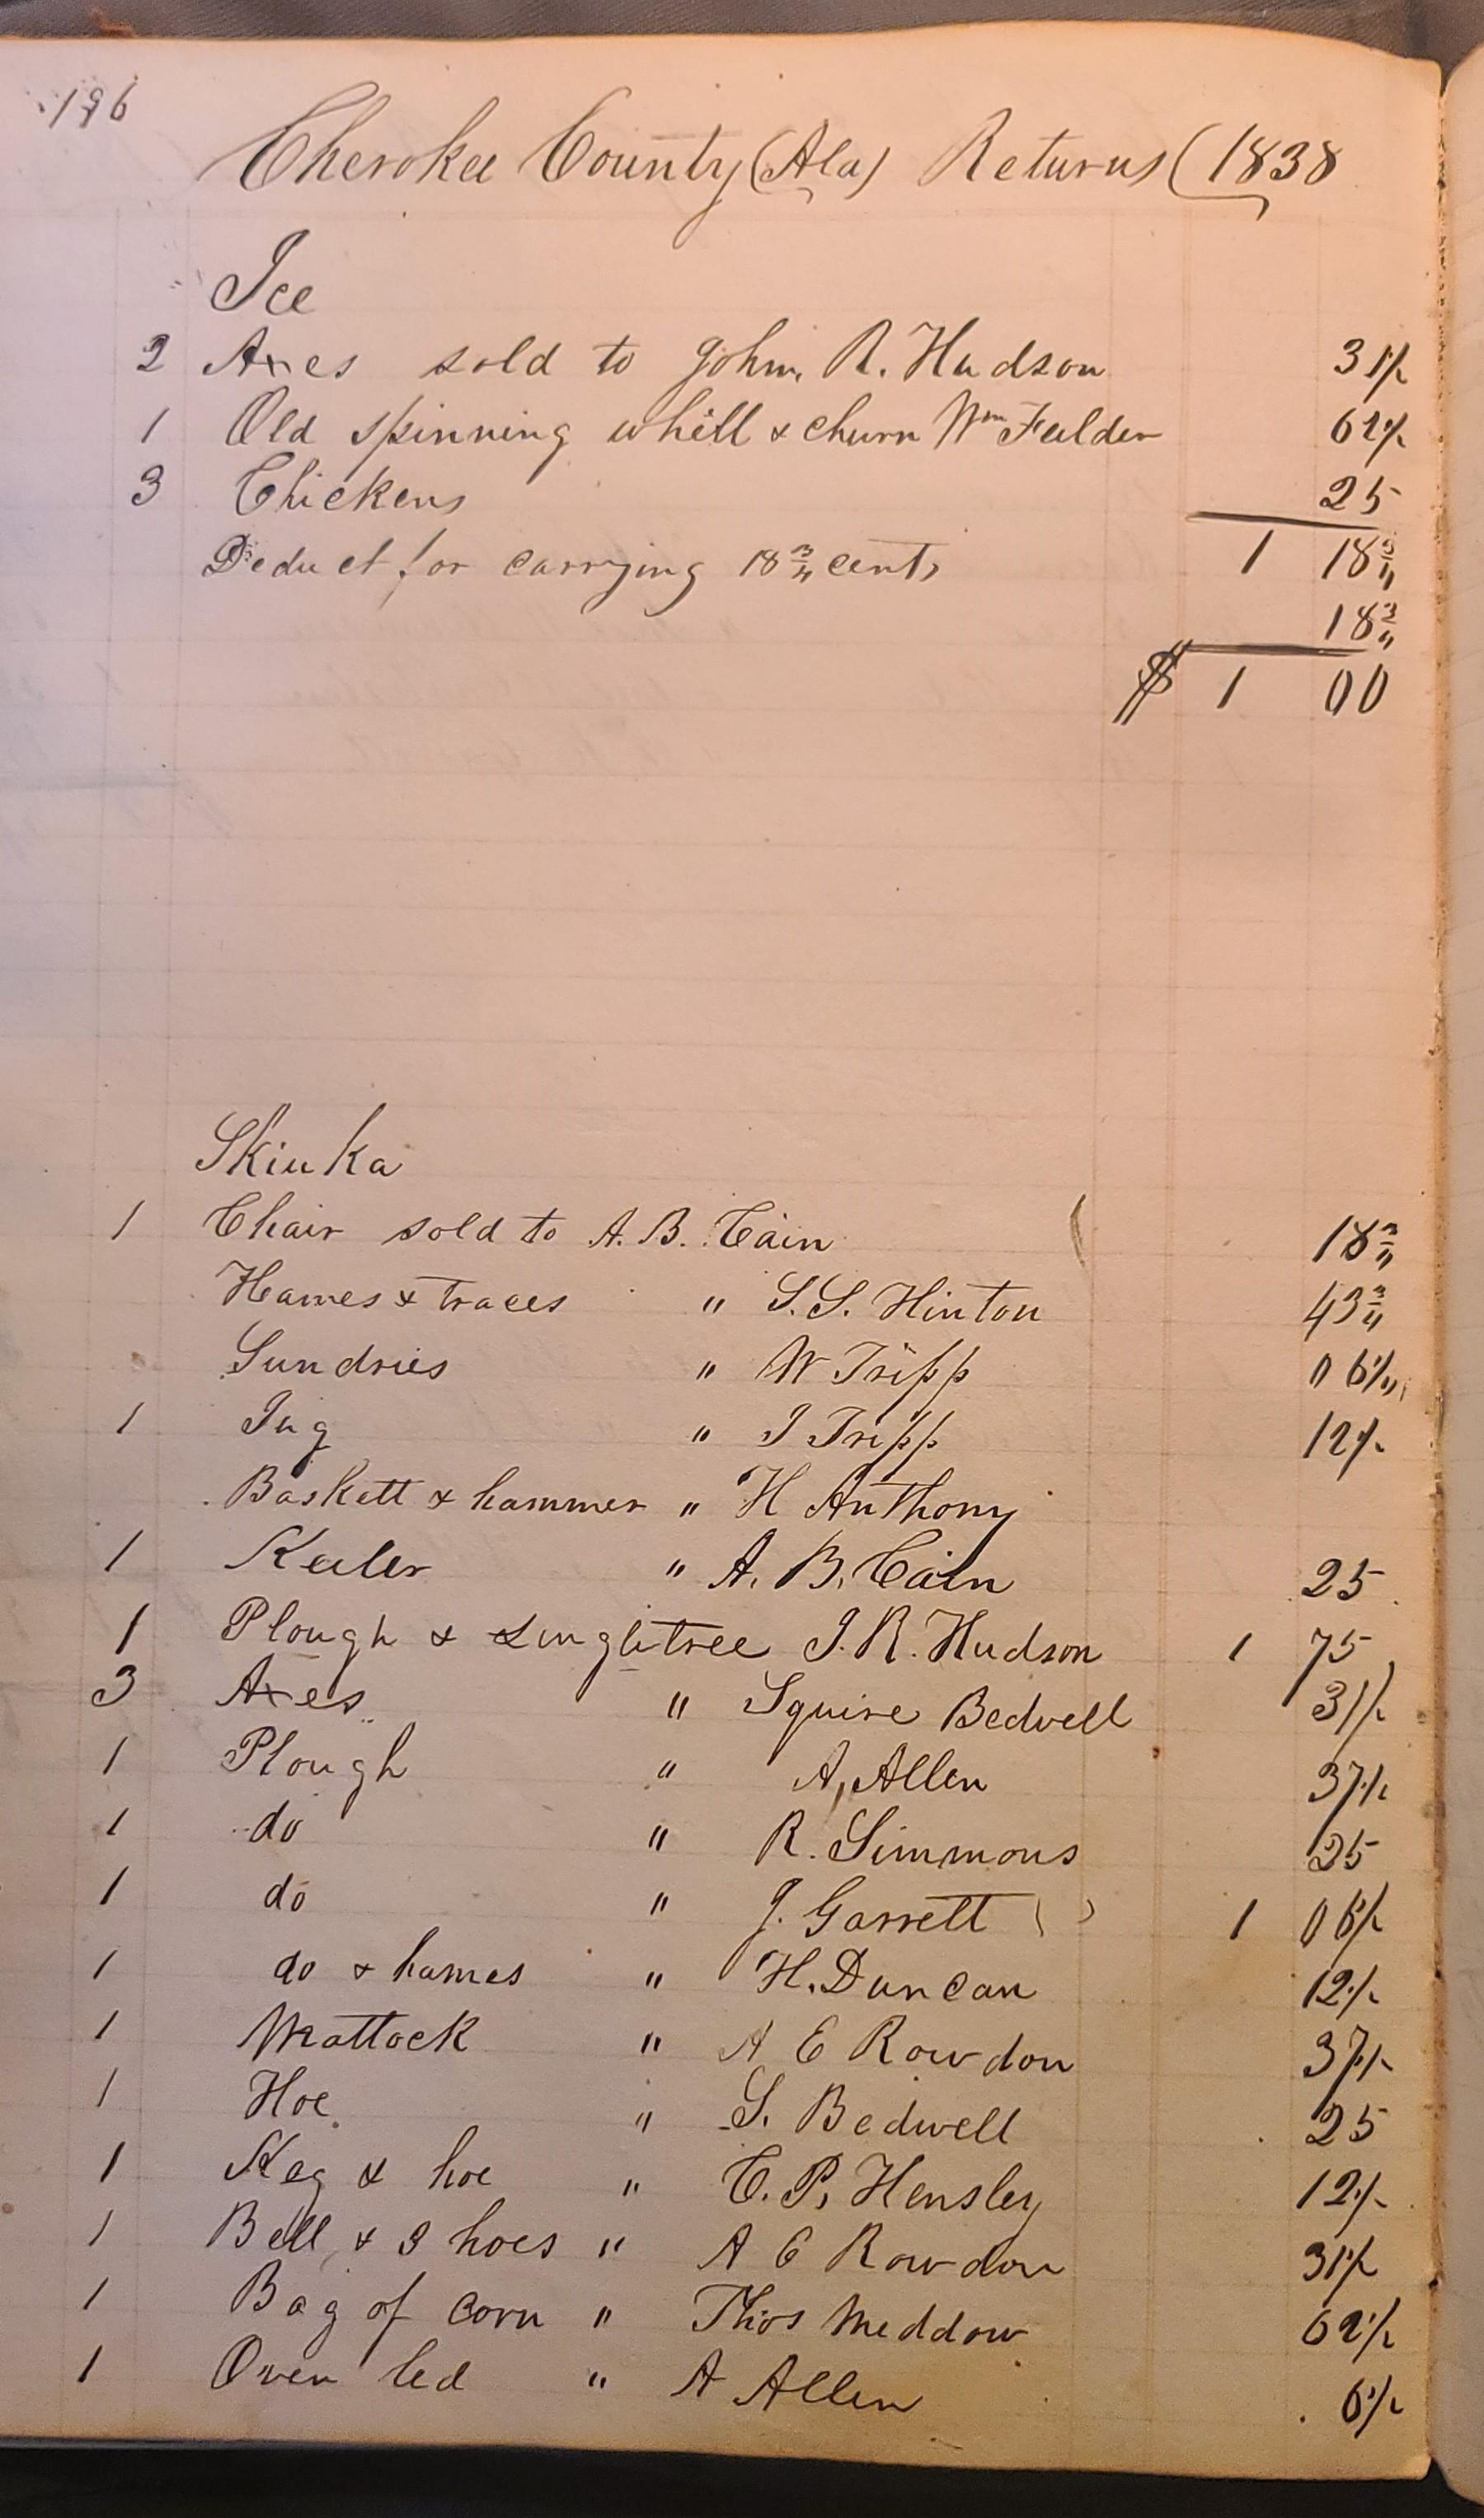 196
Cherokee County (Ala) Returns (1838
Ice
2 Axes sold to John R. Hudson 31½
1 Old spinning whell & churn Wm Fulder 62½
3 Chickens 25
Deduct for carrying 18¾ cents 1 18¾
18¾
$ 1 00
Skiuka
1 Chair sold to A. B. Cain 18¾
Hames & traces " S. S. Hinton 43¾
Sundries " W Tripp 06¼
1 Jug " J Tripp 12½
Baskett & hammer " H Anthony
1 Keeler " A. B. Cain 25
1 Plough & singletree J. R. Hudson 1 75
3 Axes " Squire Bedwell 31½
1 Plough " A, Allen 37½
1 do " R. Simmons 25
1 do " J. Garrett 1 06½
1 do & hames " H. Duncan 12½
1 Mattock " A E Rowdon 37½
1 Hoe " S. Bedwell 25
1 Keg & hoe " C. P. Hensley 12½
1 Bell & 3 hoes " A E Rowdon 31½
1 Bag of corn " Thos Meddow 62½
1 Oven led " A Allen 6½